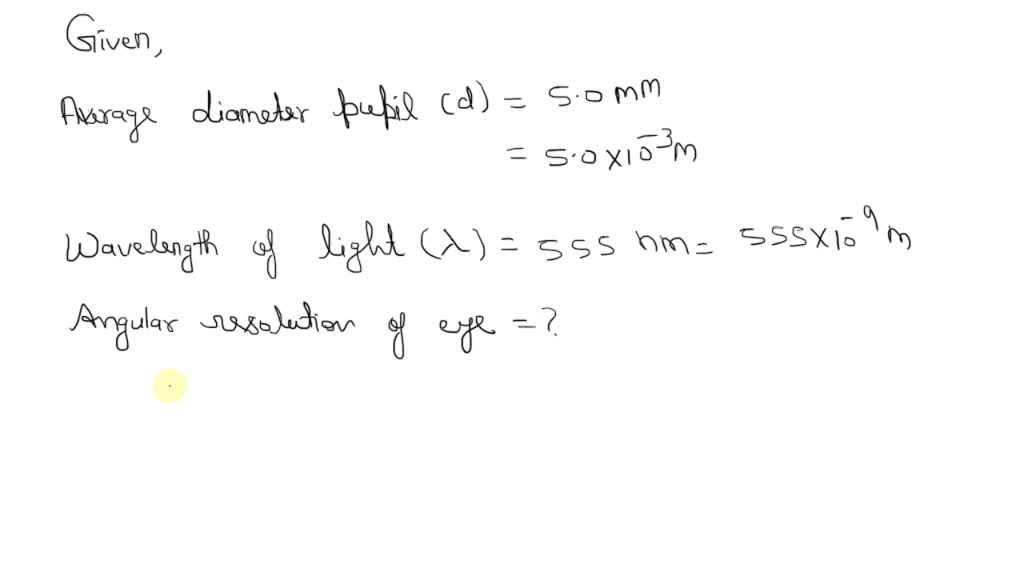 Given,
Average diameter pupil (d) = 5.0 mm
= 5.0 × 10⁻³ m
Wavelength of light (λ) = 555 nm = 555 × 10⁻⁹ m
Angular resolution of eye = ?